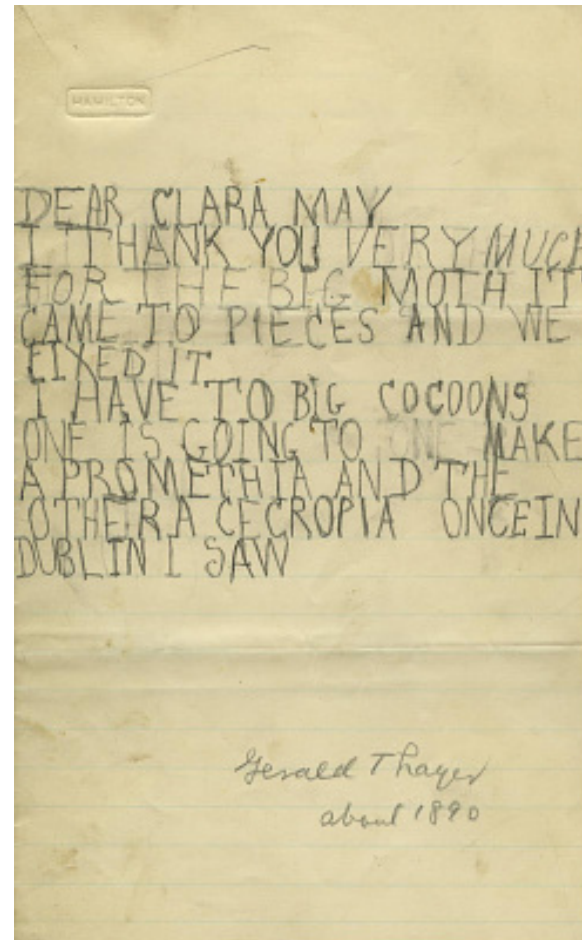 HAMILTON
DEAR CLARA MAY
I THANK YOU VERY MUCH
FOR THE BIG MOTH IT
CAME TO PIECES AND WE
FIXED IT
I HAVE TO BIG COCOONS
ONE IS GOING TO ONE MAKE
A PROMETHIA AND THE
OTHER A CECROPIA ONCE IN
DUBLIN I SAW
Gerald Thayer
about 1890